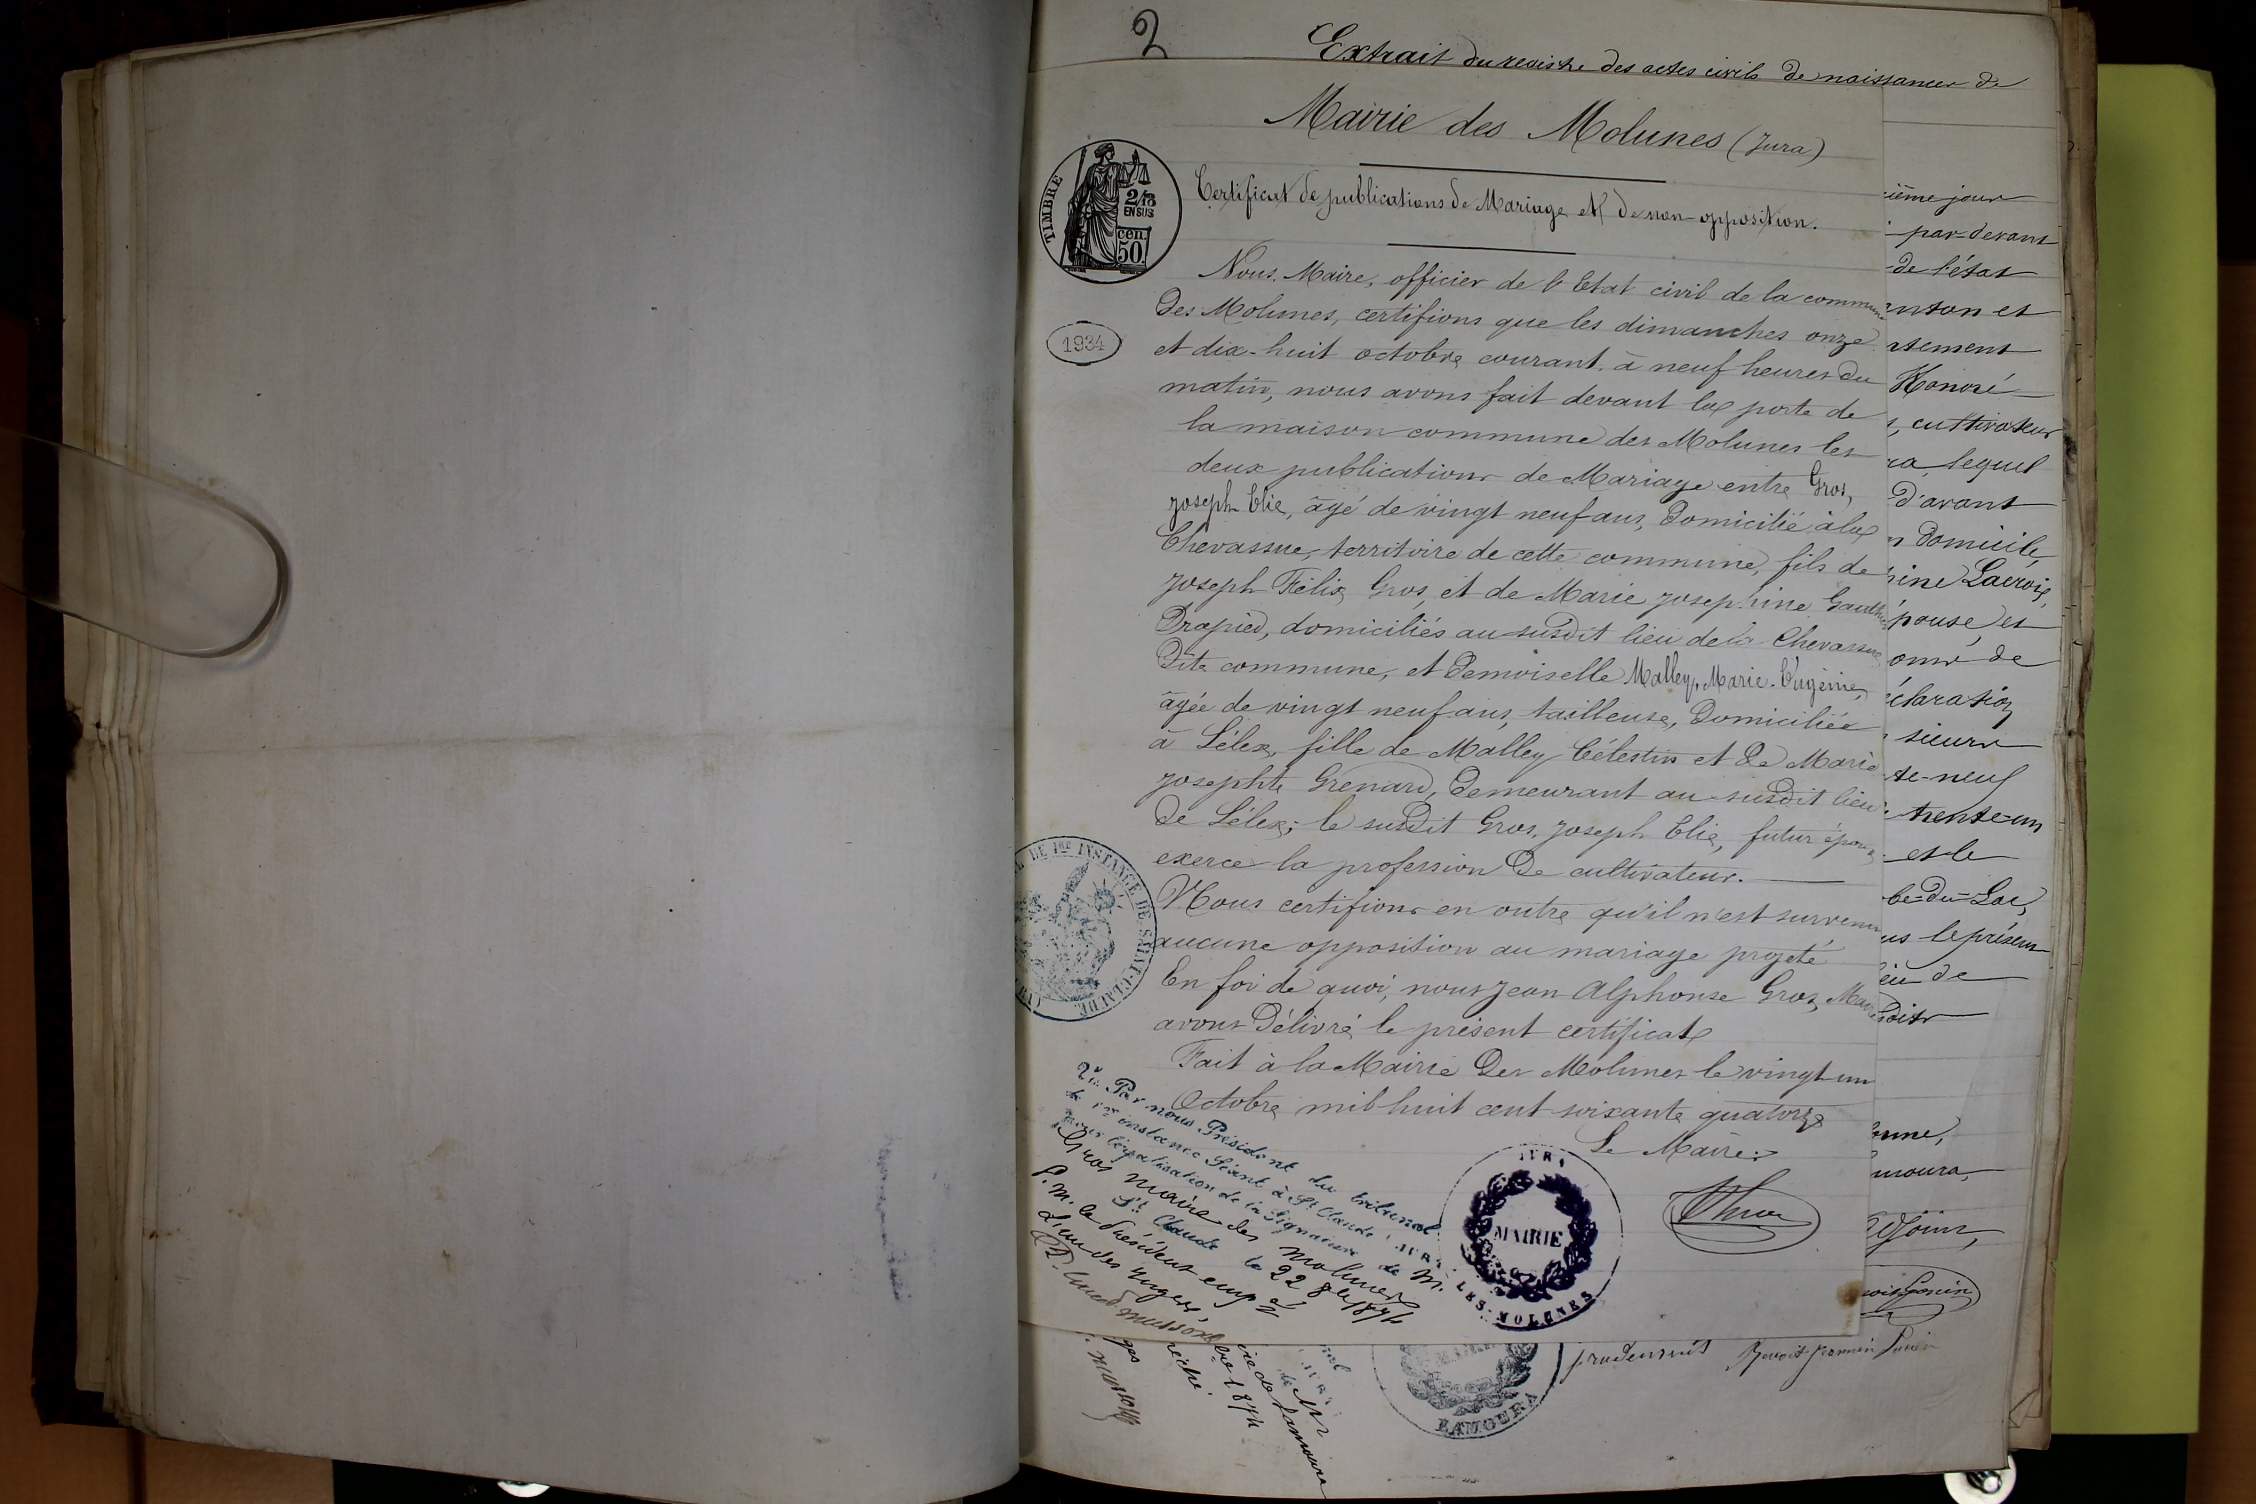 2
Extrait du registre des actes civils de naissances de
Mairie des Molunes (Jura)
TIMBRE
2/10
EN SUS
cen.
50.
Certificat de publications de Mariage et de non-opposition.
Nous, Maire, officier de l'Etat civil de la commune
Des Molunes, certifions que les dimanches onze
1934
et dix-huit octobre courant, à neuf heures du
matin, nous avons fait devant la porte de
la maison commune des Molunes les
deux publications de Mariage entre Gros,
Joseph Elie, âgé de vingt neuf ans, Domicilié à la
Chevassue, territoire de cette commune, fils de
Joseph Félix Gros, et de Marie Josephine Gauthier
Drapied, domiciliés au susdit lieu de la Chevassue
Dite commune, et Demoiselle Malley, Marie-Eugénie,
âgée de vingt neuf ans, tailleuse, Domiciliée
à Lélex, fille de Malley Célestin et de Marie
Josephte Grenard, Demeurant au susdit lieu
de Lélex; le susdit Gros, Joseph Elie, futur époux
exerce la profession de cultivateur.
Nous certifions en outre qu'il n'est survenu
aucune opposition au mariage projeté
En foi de quoi, nous Jean Alphonse Gros, Maire
avons Délivré le présent certificat
Fait à la Mairie Des Molunes le vingt un
Octobre mil huit cent soixante quatorze
Le Maire:
DE 1re INSTANCE DE SAINT-CLAUDE
Vu Par nous Président du tribunal
de 1re instance Séant à St Claude, JURA
pour légalisation de la Signature de M.
Gros maire des Molunes
St Claude le 22 8bre 1874
P. M. le Président emp é
L'un des Juges,
JURA
MAIRIE
LES-MOLUNES
ième jour
par-devant
de l'état
anton et
Honoré
, cultivateur
ra, lequel
D'avant
n domicile,
ine Lacroix,
épouse, et
om de
éclaration
sieurs
te-neuf
trente-un
et le
be-du-Lac,
us le présent
lieu de
moura,
MAIRIE
LAMOURA
1874
Benoit Germain